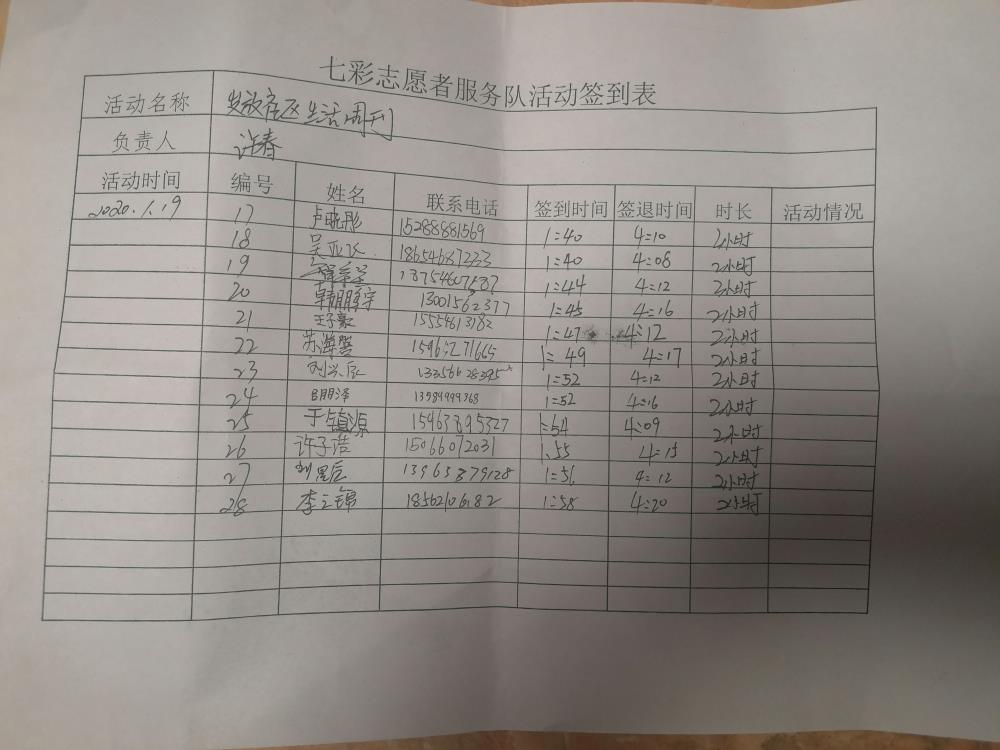 七彩志愿者服务队活动签到表
活动名称 发放 生活周刊
负责人 许春
活动时间 编号 姓名 联系电话 签到时间 签退时间 时长 活动情况
2020.1.19 17 卢晓彤 15288881569 1:40 4:10 2小时
18 吴亚飞 1:40 4:08 2小时
19 1:44 4:12 2小时
20 13001562377 1:45 4:16 2小时
21 王子豪 15554613182 1:47 4:12 2小时
22 1:49 4:17 2小时
23 刘兴辰 1:52 4:12 2小时
24 明泽 13589999368 1:52 4:16 2小时
25 于镇源 15463895327 1:54 4:09 2小时
26 许子浩 15066072031 1:55 4:15 2小时
27 13963379128 1:56 4:12 2小时
28 李立锦 18562106182 1:58 4:20 2小时